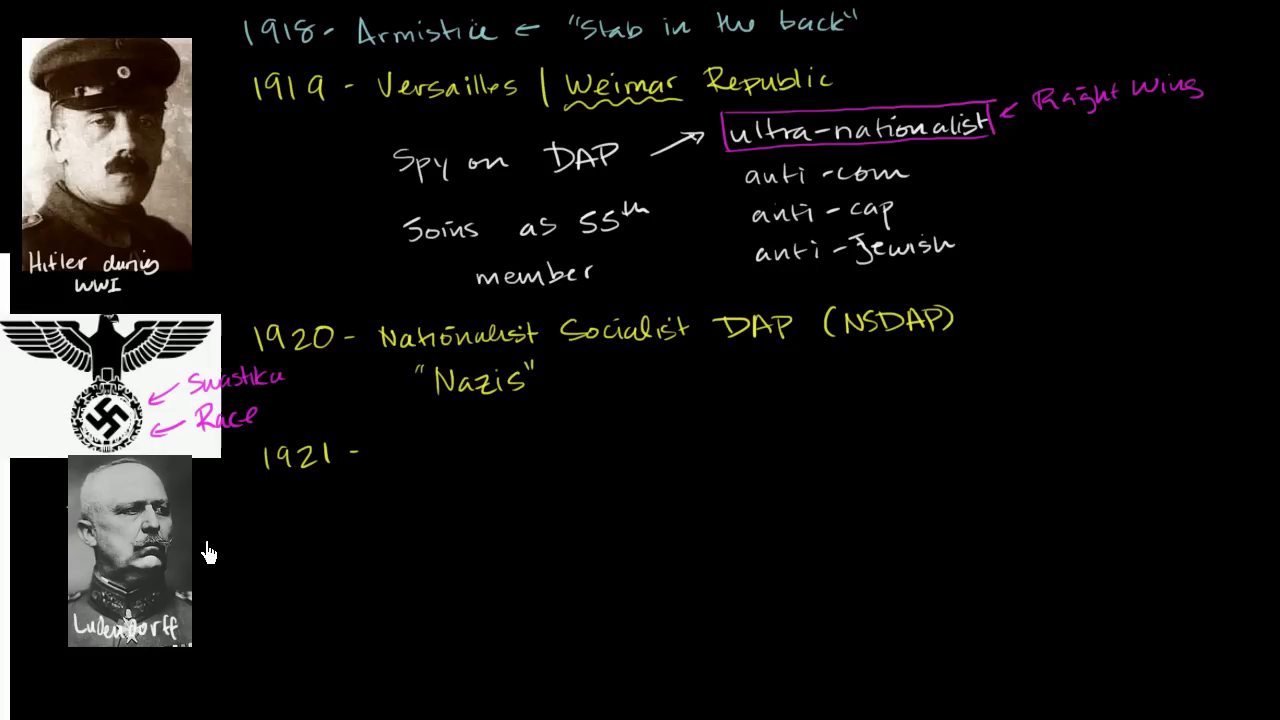 1918 - Armistice ← "Stab in the back"
1919 - Versailles | Weimar Republic
Right Wing
Spy on DAP → ultra-nationalist
anti-com
anti-cap
Joins as 55th
anti-Jewish
member
Hitler during
WWI
1920 - Nationalist Socialist DAP (NSDAP)
"Nazis"
Swastika
Race
1921 -
Ludendorff